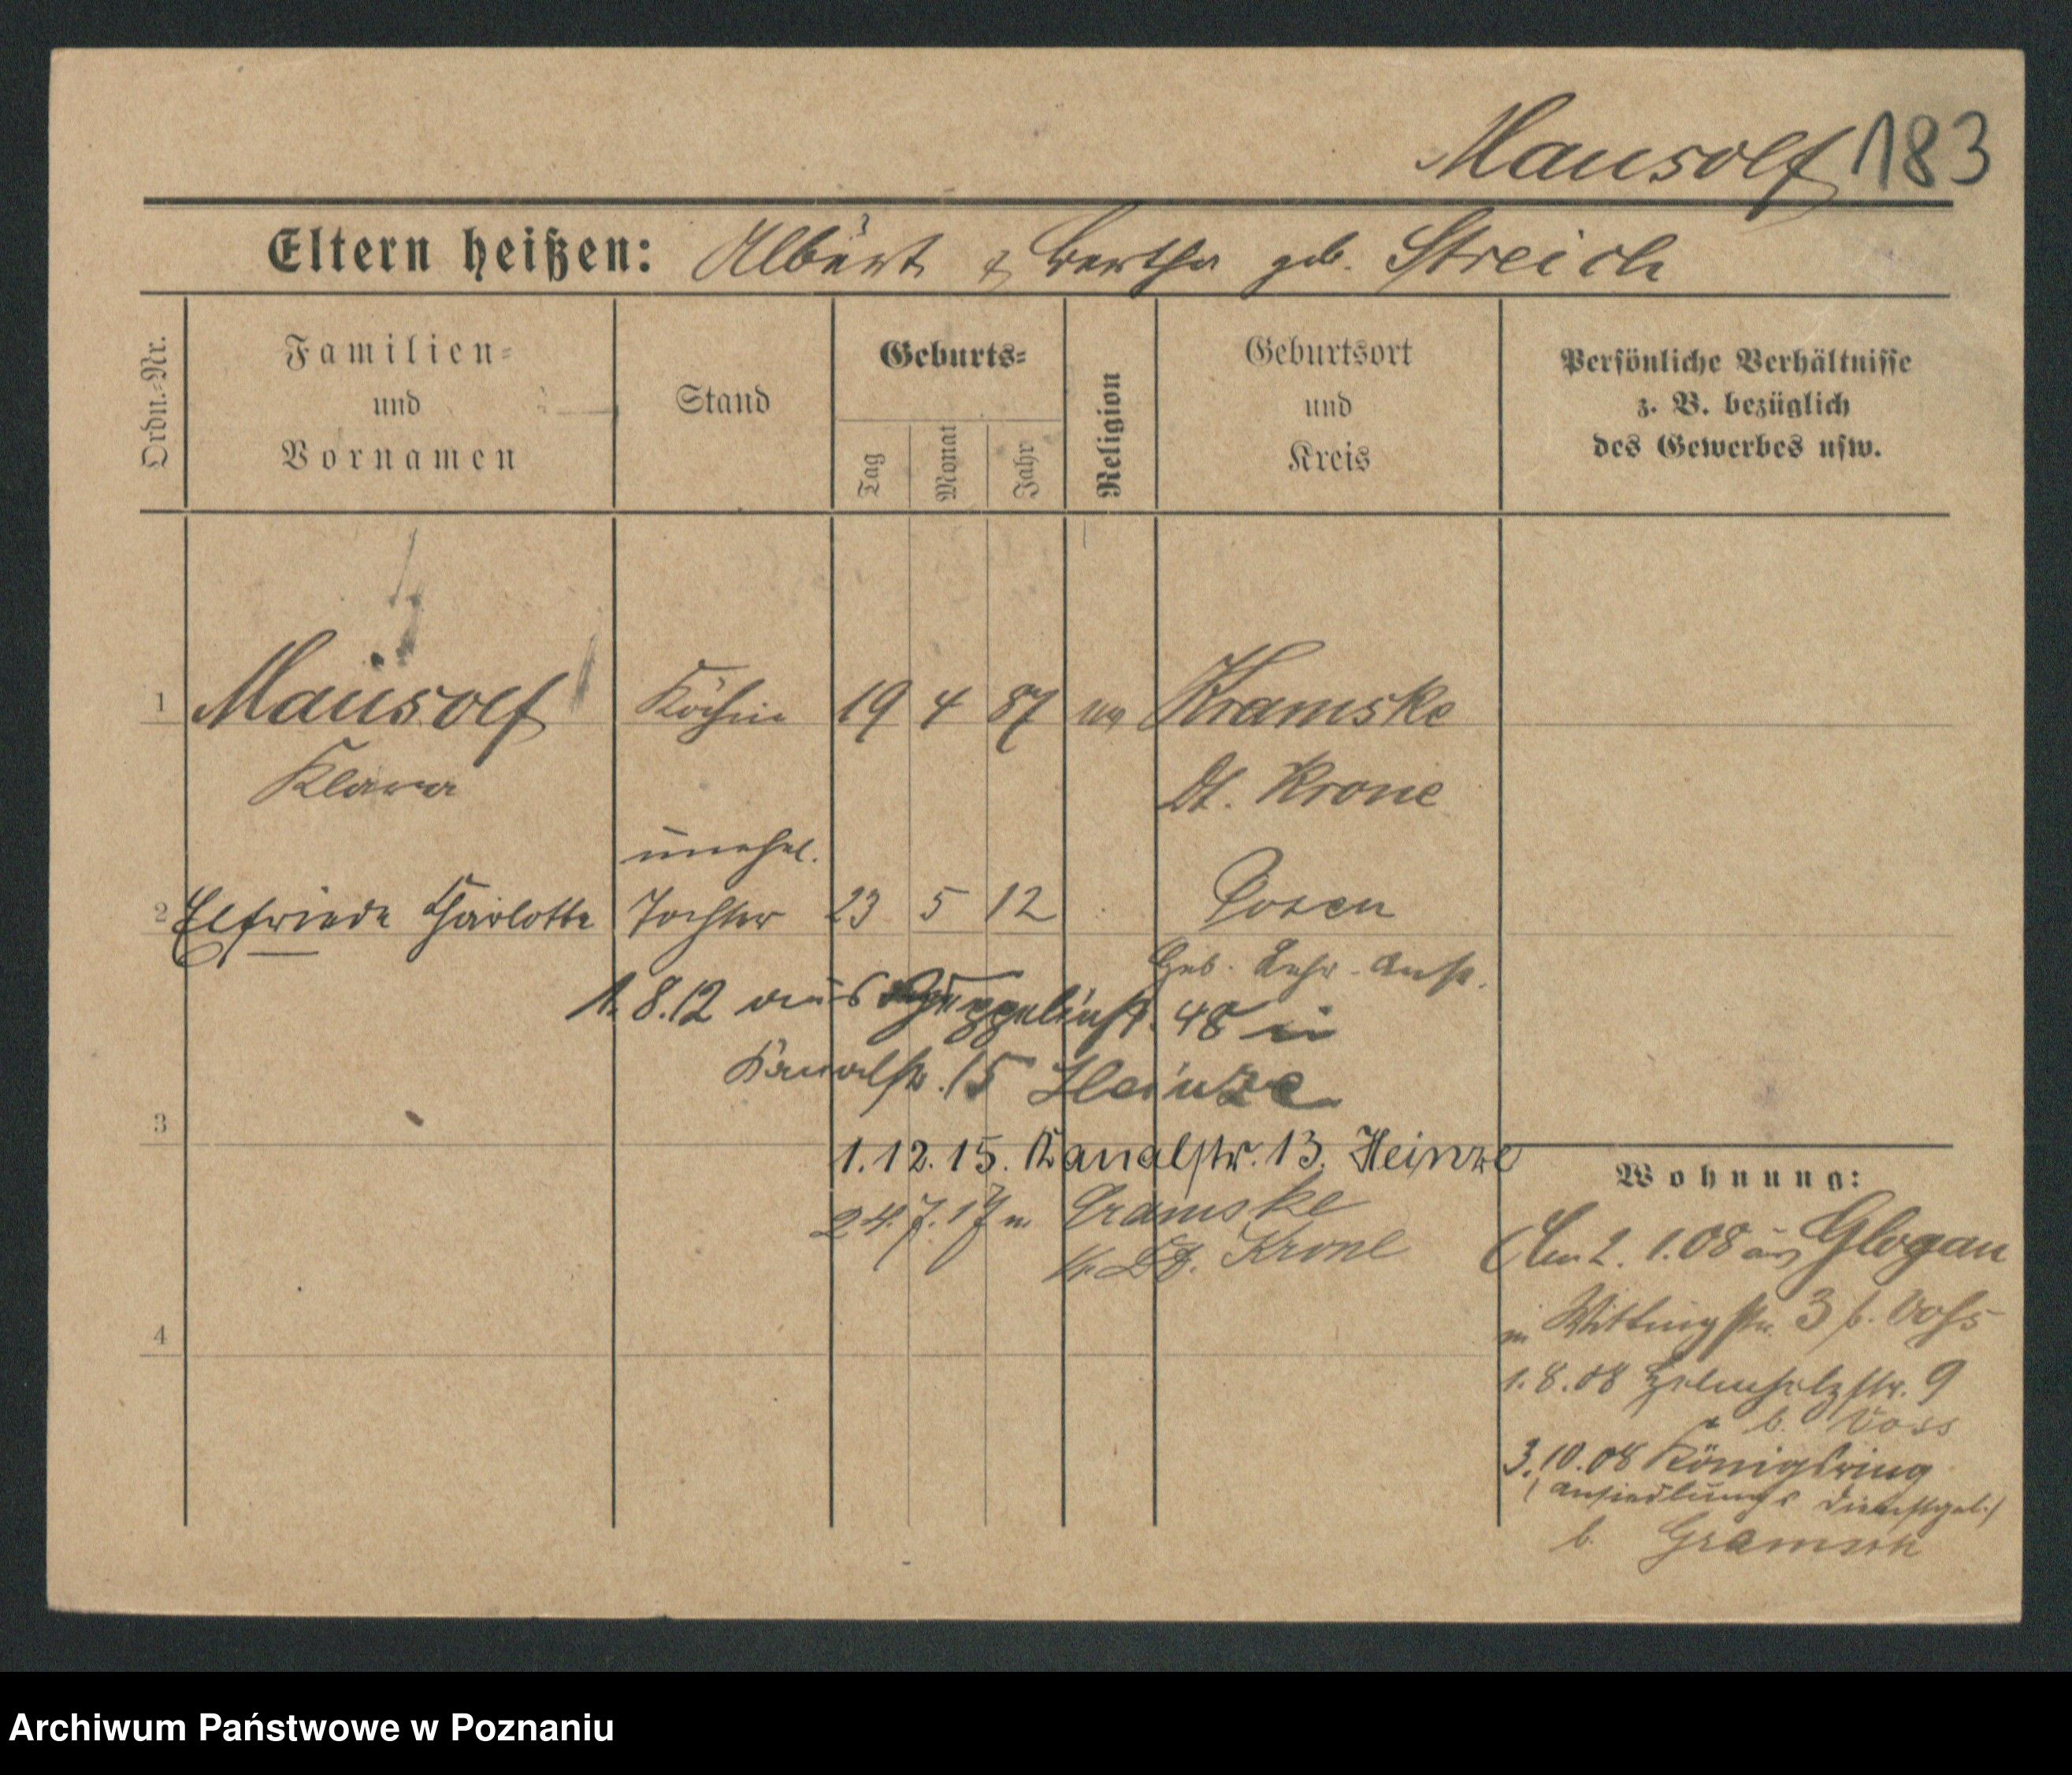 Mausolf 183
Eltern heißen: Albert & Bertha geb. Streich
Ordn.-Nr.
Familien-
und
Vornamen
Stand
Geburts-
Tag
Monat
Jahr
Religion
Geburtsort
und
Kreis
Persönliche Verhältnisse
z. B. bezüglich
des Gewerbes usw.
1 Mausolf Köchin 19 4 87 Kramske
Klara Dt. Krone
unehel.
2 Elfriede Charlotte Tochter 23 5 12 Posen
Geb. Lehr-Anst.
1.8.12 aus 48 in
Kanalstr. 15 Heinze
3
1.12.15. Kanalstr. 13. Heinze
24.7.17 n. Cramske
Kr. Dt. Krone
4
Wohnung:
Am 2. 1.08 aus Glogau
in Wittingstr. 3 b. Voss
1.8.08 Helmholzstr. 9
b. Voss
3.10.08 Königsring
(Ansiedlungs Dienstgeb.)
b. Gramsch
Archiwum Państwowe w Poznaniu